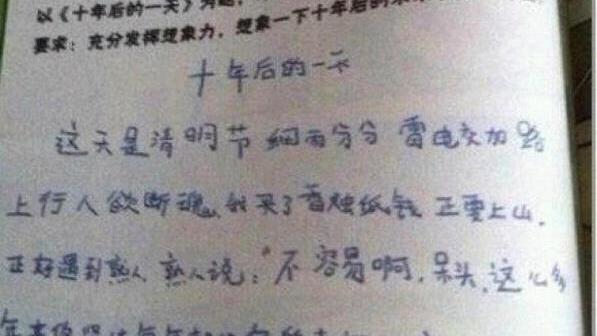 以《十年后的一天》为题,
要求：充分发挥想象力，想象一下十年后的
十年后的一天
这天是清明节 细雨分分 雷电交加 路
上行人欲断魂，我买了香烛纸钱 正要上山，
正好遇到熟人 熟人说：“不容易啊，呆头，这么多
年